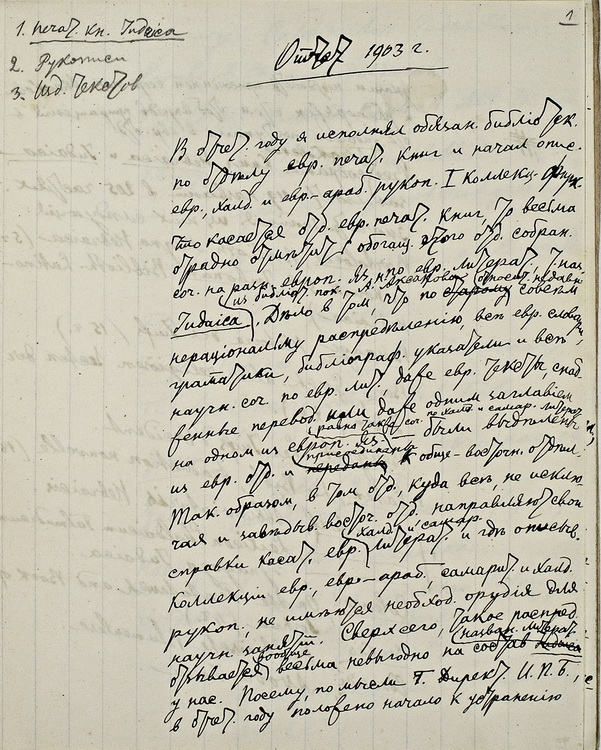 1
1. печат. кн. Iudaica
2. Рукописи
3. Изд. текстов
Отчет 1903 г.
В отчет. году я исполнял обязан. библиотек.
по отделу евр. печат. книг и начал опис.
евр., халд. и евр.-араб. рукоп. I Коллекц. Фирк.
Что касается отд. евр. печат. книг, то весьма
отрадно отметить обогащ. этого отд. собран.
соч. на разн. европ. яз. по евр. литерат. т. наз.
из библиот. пок. А. относит. недавно
Iudaica. Дело в том, что по старому совсем
нерациональному распределению, все евр. словари,
грамматики, библиограф. указатели и все
научн. соч. по евр. лит. даже евр. тексты, снаб
женные перевод. или даже одним заглавием
равно такия соч. по халд. и самар. литерат.
на одном из европ. яз. были выделены
присоединены
из евр. отд. и переданы к обще-восточн. отдел.
Так. образом, в том отд., куда все, не исклю
чая и заведыв. восточ. отд. направляют свои
халд. и самар.
справки касат. евр. литерат. и где описыв.
коллекции евр., евр.-араб. самарит. и халд.
рукоп., не имеются необход. орудия для
научн. занятий. Сверх сего, такое распред.
вообще назван. литерат.
отзывается весьма невыгодно на состав Iudaica
у нас. Посему, по мысли Г. Директ. И.П.Б.,
в отчет. году положено начало к устранению